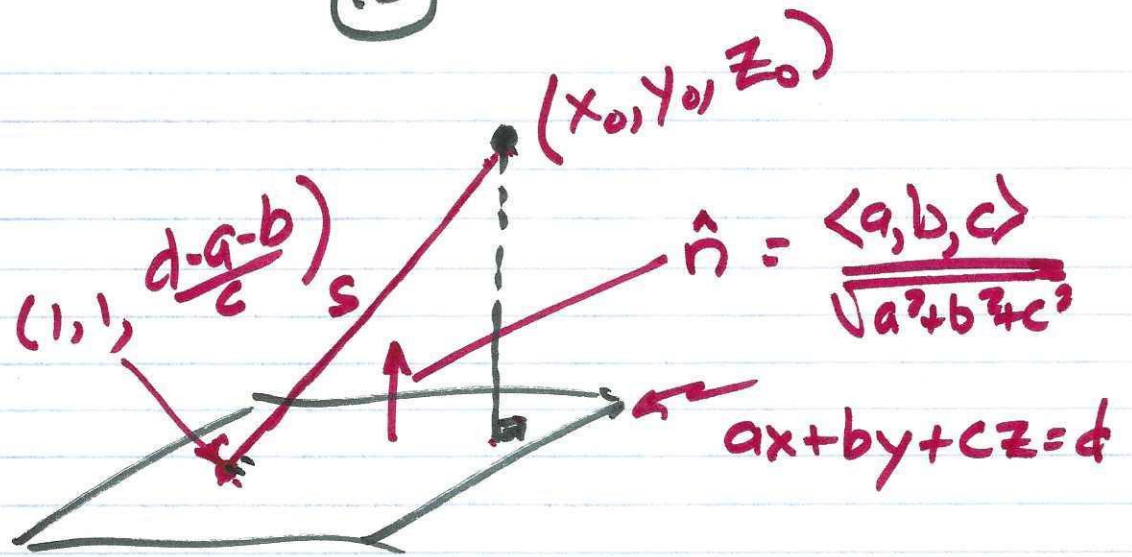 (x₀, y₀, z₀)
(1, 1, (d-a-b)/c)
s
n̂ = <a,b,c>/√(a²+b²+c²)
ax+by+cz=d